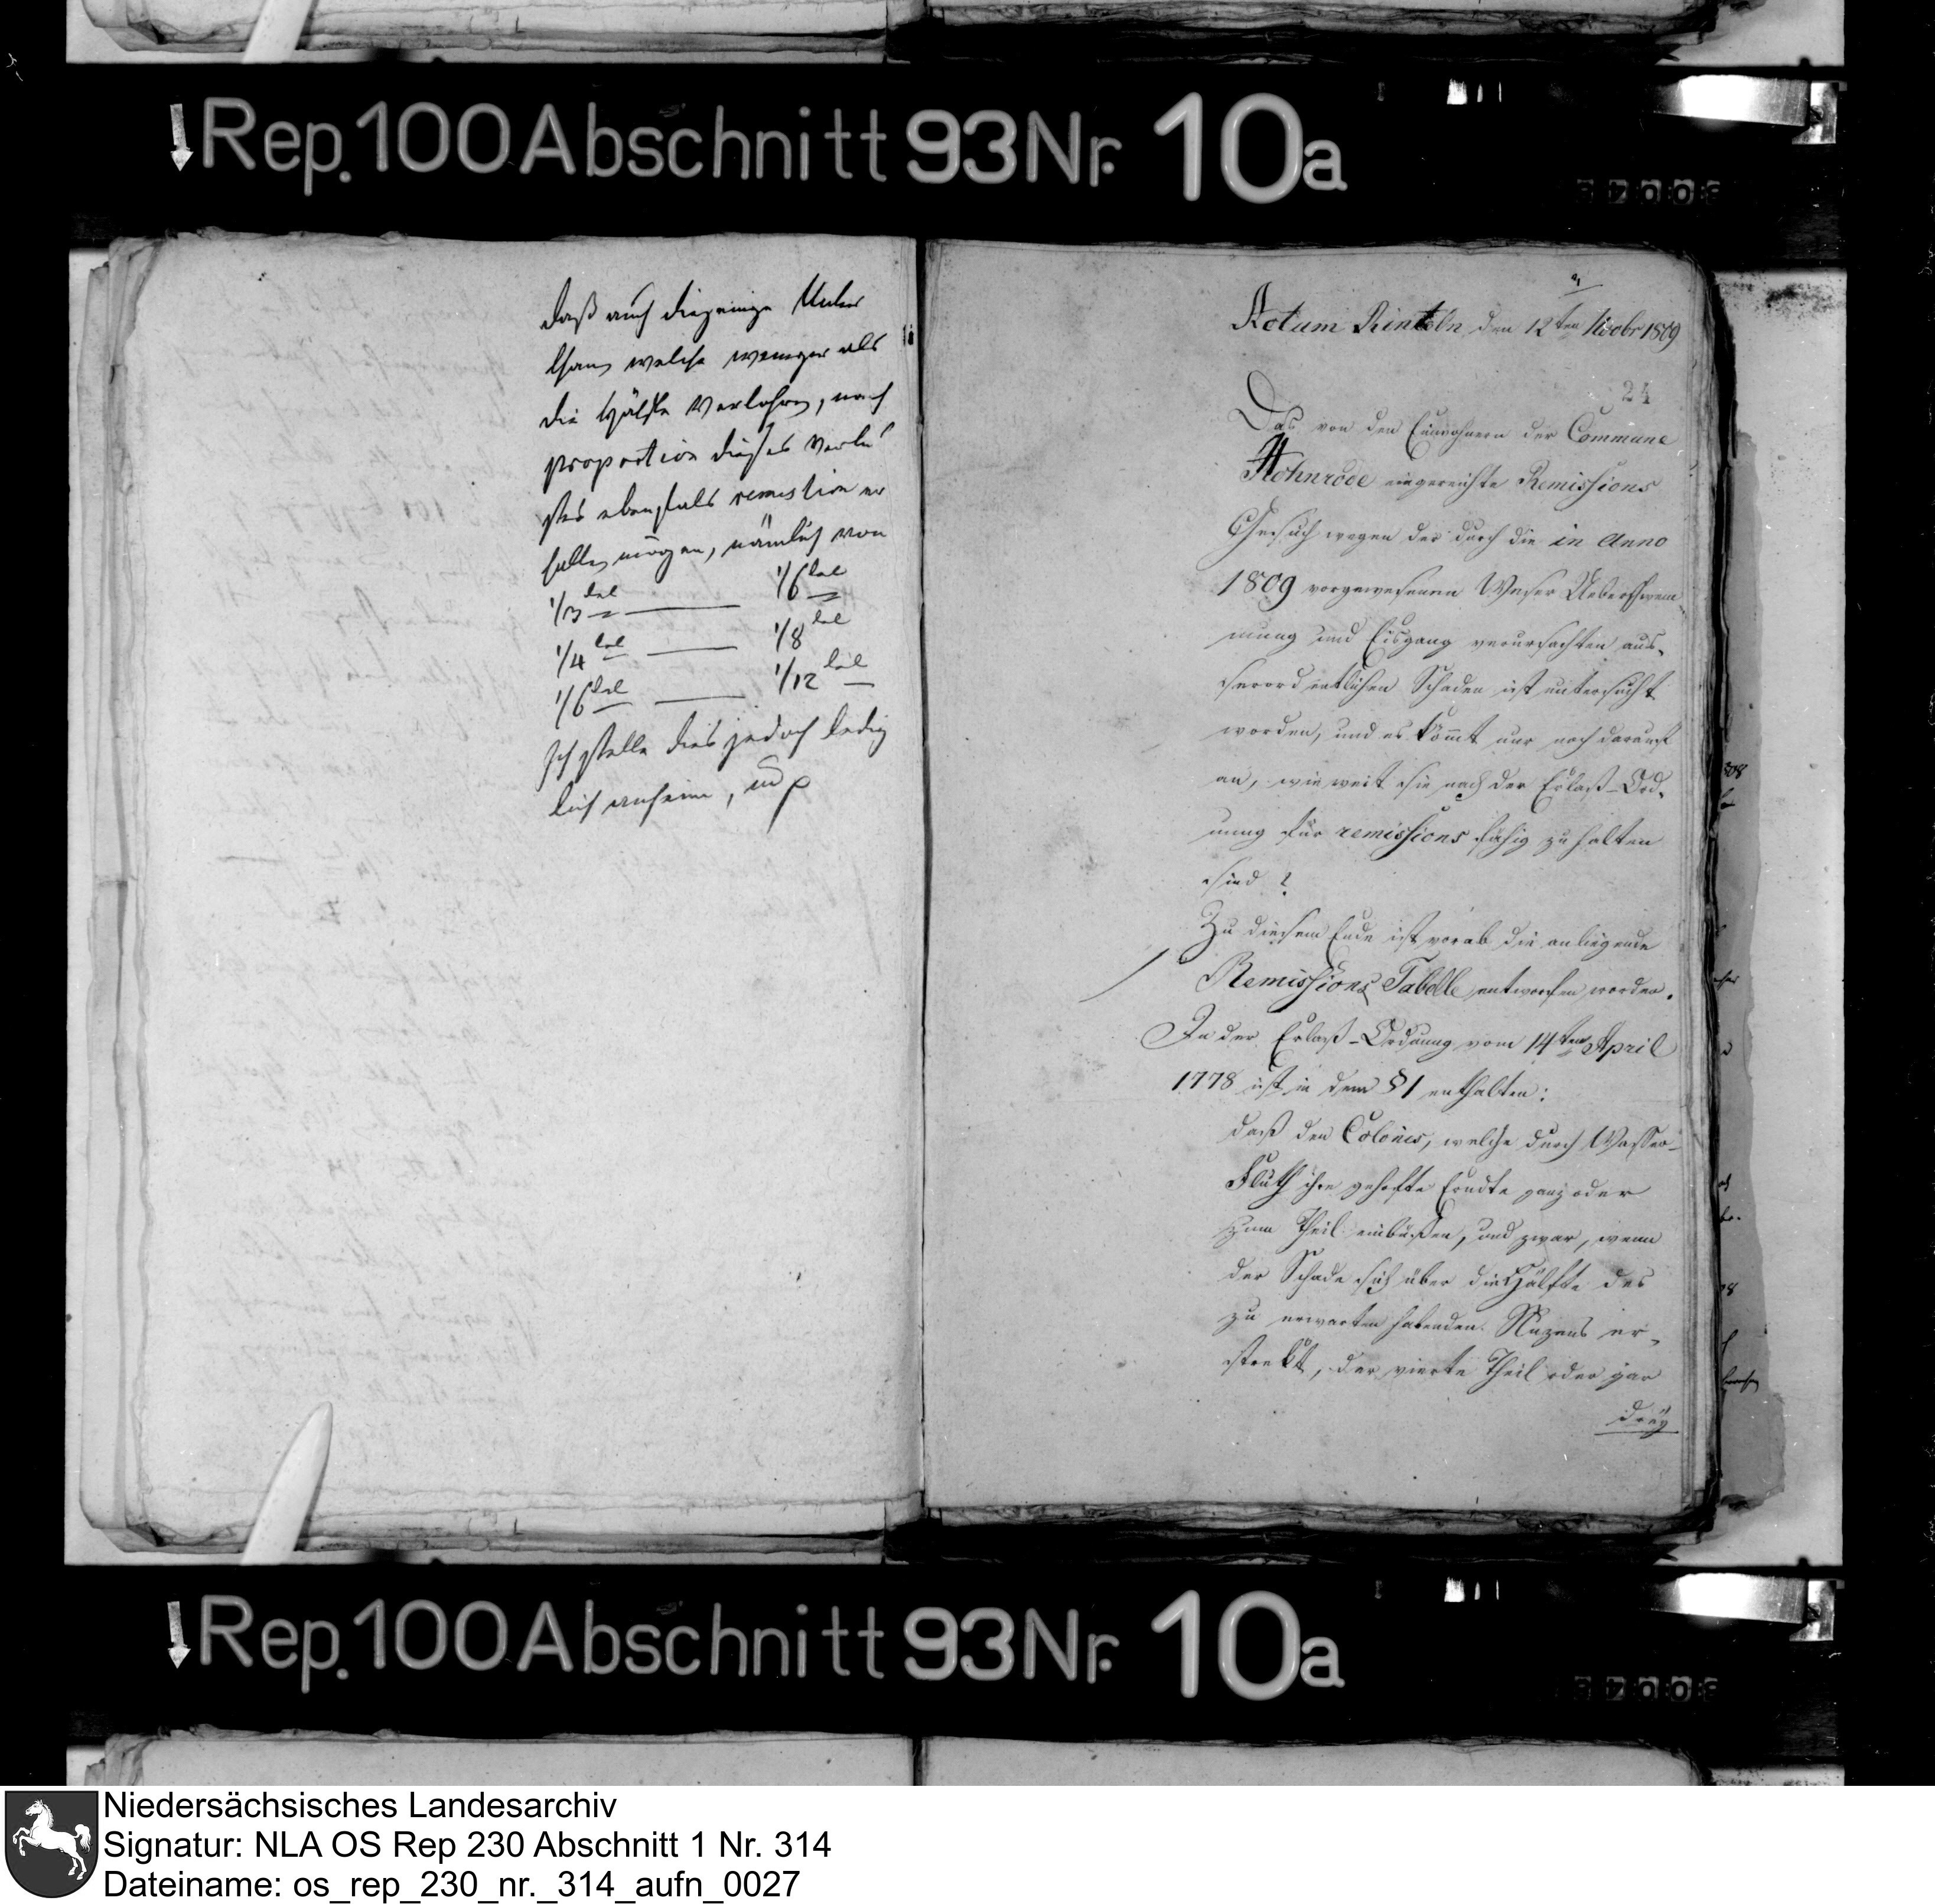 Rep. 100 Abschnitt 93 Nr. 10a
daß auch diejenige Unter
thanen welche weniger als
die Hälfte Verlohren, nach
proportion dieses Verlu
stes ebenfals remission er
halten mögen, nämlich von
1/3tel — 1/6tel
1/4tel — 1/8tel
1/6tel — 1/12tel
Ich stelle dies jedoch ledig
lich anheim, und
Actum Rinteln den 12ten Novbr 1809
24
Das von den Einwohnern der Commune
Hohnrode eingereichte Remissions
Gesuch wegen des durch die in Anno
1809 vorgewesenen Weser Ueberschwem-
mung und Eisgang verursachten aus-
serordentlichen Schaden ist untersucht
worden, und es kömt nur noch darauf
an, wie weit sie nach der Erlaß-Ord-
nung für remissions fähig zu halten
sind?
Zu diesem Ende ist vorab die anliegende
Remissions Tabelle entworfen worden.
In der Erlaß-Ordnung vom 14ten April
1778 ist in dem § 1 enthalten:
daß den Colonis, welche durch Wasser-
Fluth ihre gehofte Erndte ganz oder
zum Theil einbüßen, und zwar, wenn
der Schade sich über die Hälfte des
zu erwarten habenden Nuzens er-
strekt, der vierte Theil oder gar
drey
Rep. 100 Abschnitt 93 Nr. 10a
Niedersächsisches Landesarchiv
Signatur: NLA OS Rep 230 Abschnitt 1 Nr. 314
Dateiname: os_rep_230_nr._314_aufn_0027